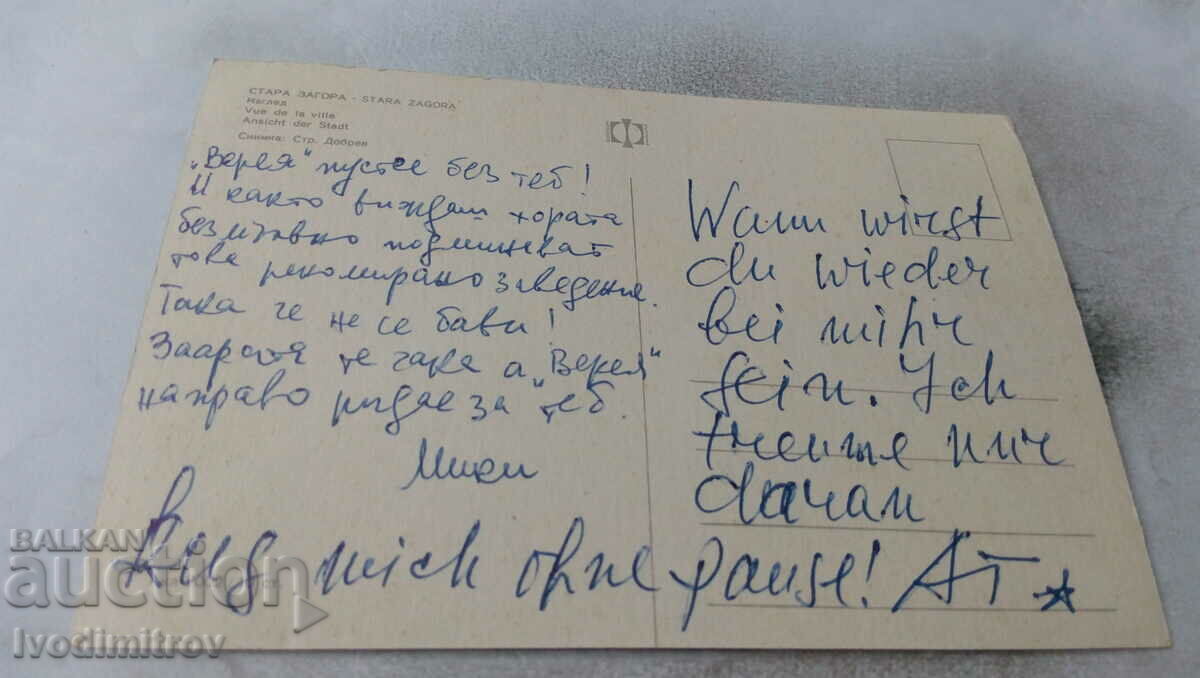 СТАРА ЗАГОРА - STARA ZAGORA
Изглед
Vue de la ville
Ansicht der Stadt
Снимка: Стр. Добрев
„Верея“ пустее без теб!
И както виждам хората
безмълвно подминават
това рекламирано заведение.
Така че не се бави!
Заарата те чака а „Верея“
направо ридае за теб.
Мики
Wann wirst
du wieder
bei mihr
sein. Ich
treume nur
daran
Küss mich ohne pause! AT
BALKAN
auction
Ivodimitrov